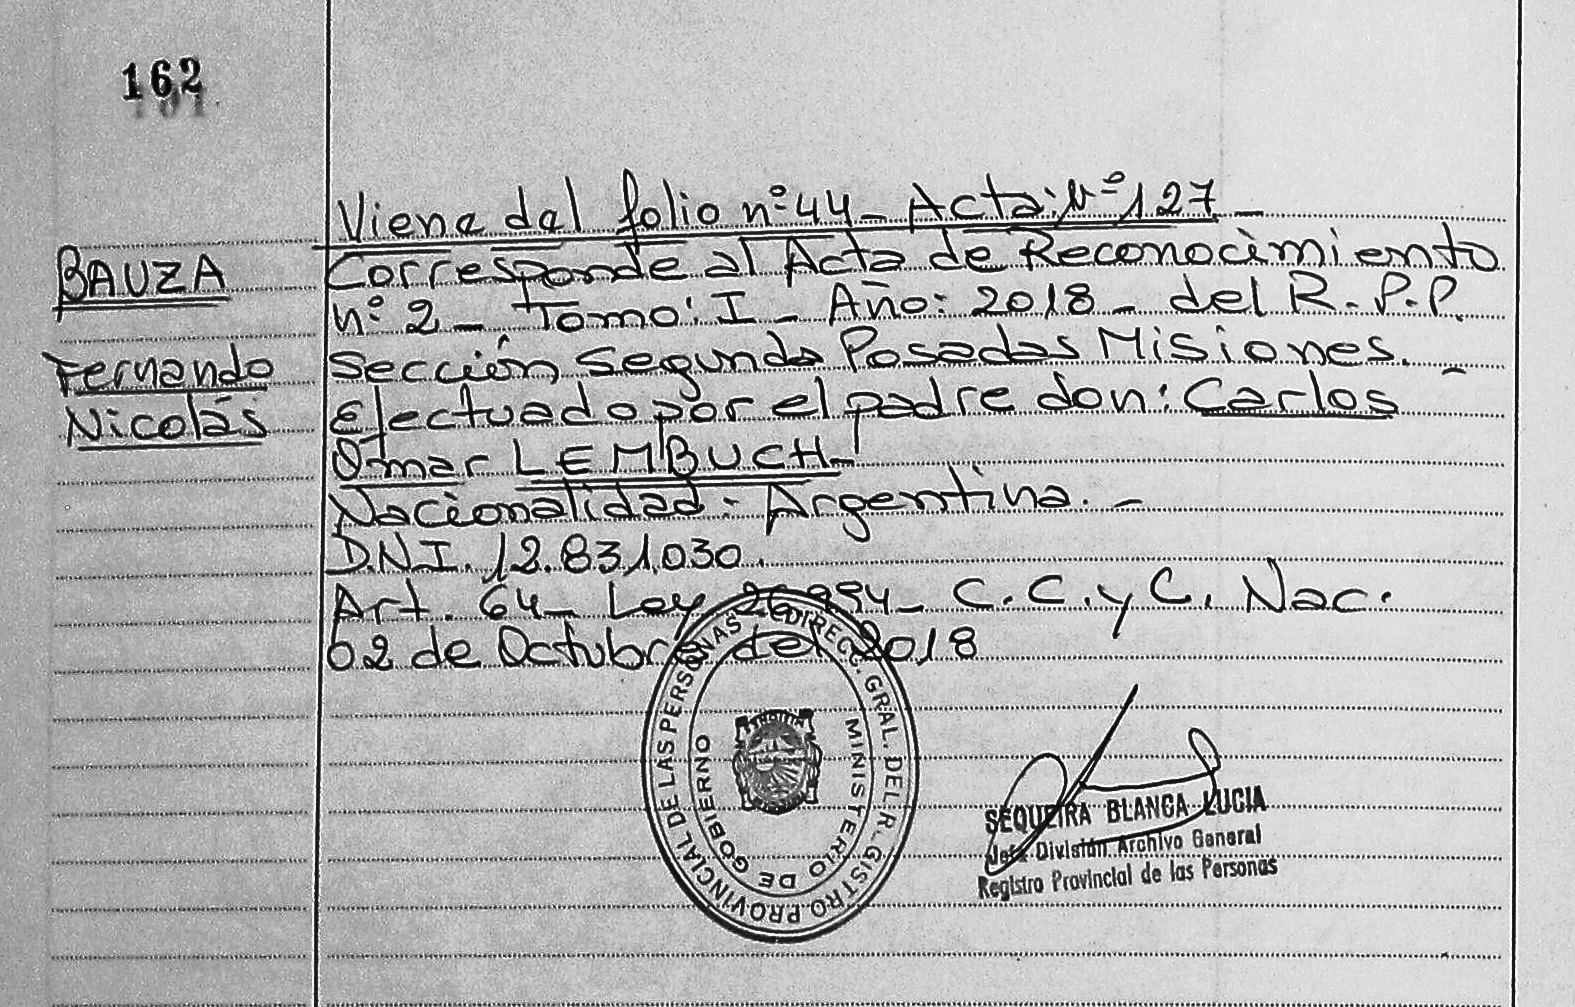 162
Viene del folio nº 44 - Acta: Nº 127 -
BAUZA
Corresponde al Acta de Reconocimiento
nº 2 - Tomo: I - Año: 2018 - del R. P. P.
Fernando
Sección Segunda Posadas Misiones. -
Nicolás
Efectuado por el padre don: Carlos
Omar LEMBUCH -
Nacionalidad: Argentina. -
D.N.I. 12.831.030.
Art. 64 - Ley 26.994 - C. C. y C. Nac.
02 de Octubre del 2018
DIRECC. GRAL. DEL R. GISTRO PROVINCIAL DE LAS PERSONAS
MINISTERIO DE GOBIERNO
SEQUEIRA BLANCA LUCIA
Jefa División Archivo General
Registro Provincial de las Personas